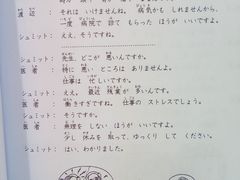 渡辺:それはいけませんね。病気かもしれませんから、
一度病院で診てもらったほうがいいですよ。
シュミット:ええ。そうですね。
シュミット:先生、どこが悪いんですか。
医者:特に悪いところはありませんよ。
仕事は忙しいですか。
シュミット:ええ。最近残業が多いんです。
医者:働きすぎですね。仕事のストレスでしょう。
シュミット:そうですか。
医者:無理をしないほうがいいですよ。
少し休みを取って、ゆっくりしてください。
シュミット:はい、わかりました。